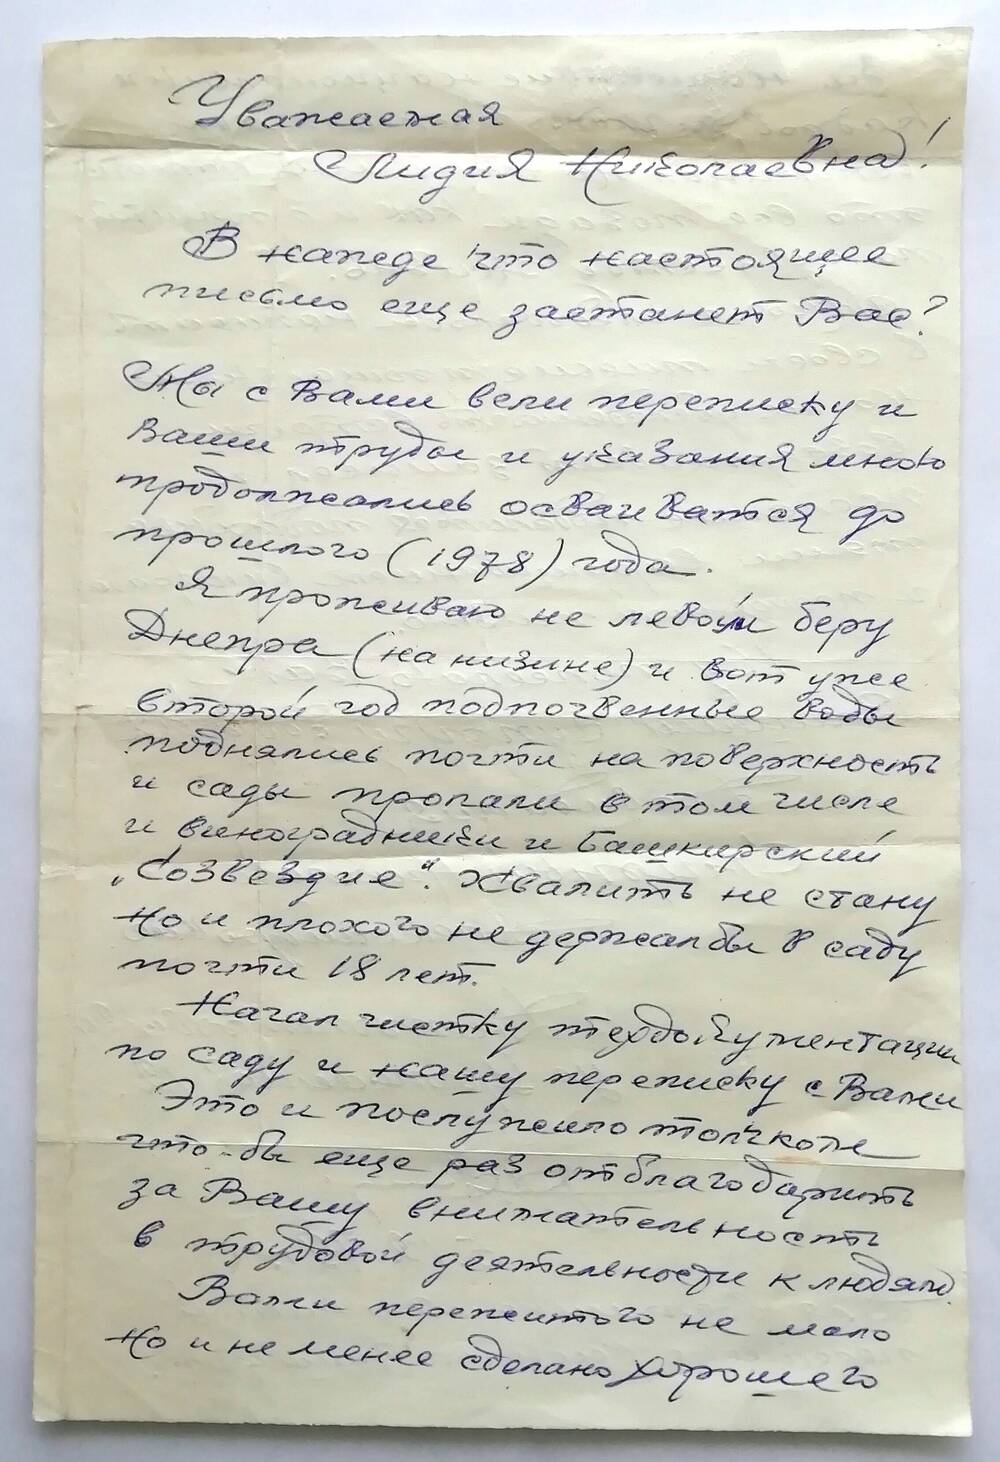 Уважаемая
Лидия Николаевна!
В надежде что настоящее
письмо еще застанет Вас?
Мы с Вами вели переписку и
Ваши труды и указания мною
продолжались осваиватся до
прошлого (1978) года.
Я проживаю не левой беру
Днепра (на низине) и вот уже
второй год подпочвенные воды
поднялись почти на поверхность
и сады пропали в том числе
и виноградники и Башкирский
„Созвездие". Хвалить не стану
Но и плохого не держал бы в саду
почти 18 лет.
Начал чистку техдокументации
по саду и нашу переписку с Вами
Это и послужило толчком
что-бы еще раз отблагодарить
за Вашу внимательность
в трудовой деятельности к людям.
Вами пережитого не мало
Но и не менее сделано хорошего